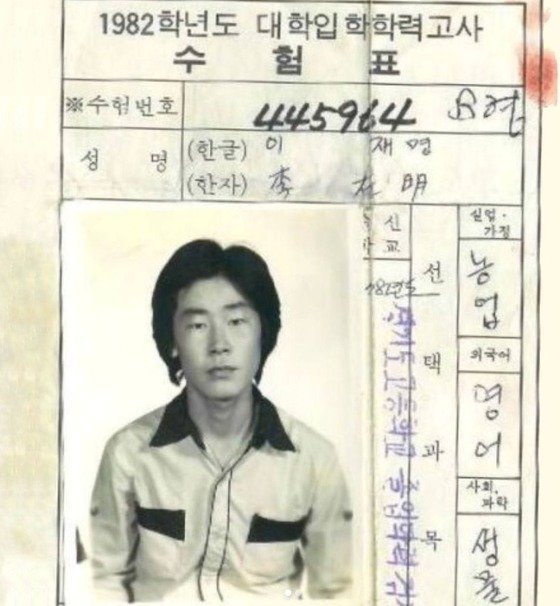 1982학년도 대학입학학력고사
수 험 표
※수험번호 445964
성 명 (한글) 이 재 명
(한자) 李 在 明
신
교
선
택
과
목
실업·
가정
농업
외국어
영어
사회,
과학
생물